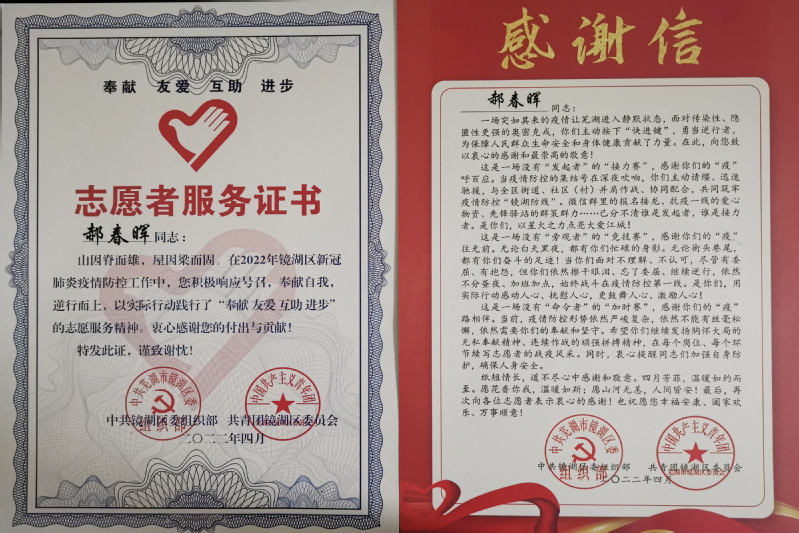 奉献 友爱 互助 进步
志愿者服务证书
郝春晖同志：
山因脊而雄，屋因梁而固。在2022年镜湖区新冠
肺炎疫情防控工作中，您积极响应号召，奉献自我，
逆行而上，以实际行动践行了“奉献 友爱 互助 进步”
的志愿服务精神。衷心感谢您的付出与贡献！
特发此证，谨致谢忱！
中共芜湖市镜湖区委
组织部
中国共产主义青年团
中共镜湖区委组织部 共青团镜湖区委员会
二〇二二年四月
感谢信
郝春晖 同志：
一场突如其来的疫情让芜湖进入静默状态，面对传染性、隐
匿性更强的奥密克戎，你们主动按下“快进键”，勇当逆行者，
为保障人民群众生命安全和身体健康贡献了力量。在此，向您致
以衷心的感谢和最崇高的敬意！
这是一场没有“发起者”的“接力赛”，感谢你们的“疫”
呼百应。当疫情防控的集结号在深夜吹响，你们主动请缨、迅速
驰援，与全区街道、社区（村）并肩作战、协同配合，共同筑牢
疫情防控“镜湖防线”。微信群里的报名接龙、抗疫一线的爱心
物资、先锋驿站的群策群力……已分不清谁是发起者，谁是接力
者。是你们，以星火之力点亮大爱江城！
这是一场没有“旁观者”的“竞技赛”，感谢你们的“疫”
往无前。无论白天黑夜，都有你们忙碌的身影。无论街头巷尾，
都有你们奋斗的足迹！当你们面对不理解、不认可，尽管有委
屈、有抱怨，但你们依然擦干眼泪、忘了委屈、继续逆行，依然
不分昼夜、加班加点，始终战斗在疫情防控第一线。是你们，用
实际行动感动人心、抚慰人心，更鼓舞人心、激励人心！
这是一场没有“命令者”的“加时赛”，感谢你们的“疫”
路相伴。当前，疫情防控形势依然严峻复杂，依然不能有丝毫松
懈，依然需要你们的奉献和坚守。希望你们继续发扬胸怀大局的
无私奉献精神、连续作战的顽强拼搏精神，在每个岗位、每个环
节续写志愿者的战疫风采。同时，衷心提醒同志们加强自身防
护，确保人身安全。
纸短情长，道不尽心中感谢和敬意。四月芳菲，温暖如约而
至。愿花香你我，温暖如斯；愿山河无恙，人间皆安！最后，再
次向各位志愿者表示衷心的感谢！也祝愿您幸福安康、阖家欢
乐、万事顺意！
中共芜湖市镜湖区委
组织部
中国共产主义青年团
芜湖市镜湖区委员会
中共镜湖区委组织部 共青团镜湖区委员会
二〇二二年四月